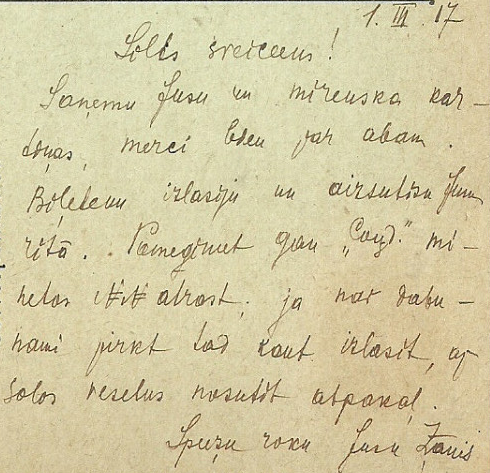 1. III. 17
Solis sveiceens!
Saņemu Jusu un mirenska kar-
tiņas, merci bien par abam.
Biļetenu izlasiju un aizsutisu Jums
rītā. Pamēģinat gan "Coyd." mi-
netos NN atrast, ja nav dabu-
nami pirkt tad kaut izlasit, ap-
solos veselus nosutit atpakaļ.
Spiežu roku Jusu Žanis